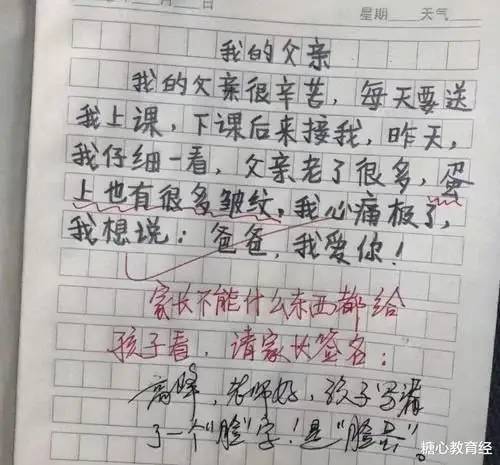 月 日 星期 天气
我的父亲
我的父亲很辛苦，每天要送
我上课，下课后来接我，昨天，
我仔细一看，父亲老了很多，蛋
上也有很多皱纹，我心痛极了，
我想说：爸爸，我爱你！
家长不能什么东西都给
孩子看，请家长签名：
高峰，老师好，孩子写错
了一个"脸"字！是"脸蛋"。
搪心教育经